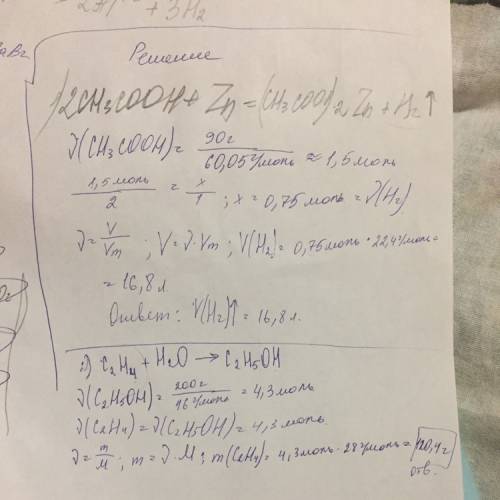 + 3H₂
Решение
1) 2CH₃COOH + Zn = (CH₃COO)₂Zn + H₂↑
ν(CH₃COOH) = 90г / 60,05г/моль ≈ 1,5 моль
1,5 моль / 2 = x / 1 ; x = 0,75 моль = ν(H₂)
ν = V / Vm ; V = ν · Vm ; V(H₂) = 0,75 моль · 22,4 л/моль =
= 16,8 л
Ответ: V(H₂)↑ = 16,8 л.
C₂H₄ + H₂O → C₂H₅OH
ν(C₂H₅OH) = 200г / 46г/моль = 4,3 моль
ν(C₂H₄) = ν(C₂H₅OH) = 4,3 моль
ν = m / M ; m = ν · M ; m(C₂H₄) = 4,3 моль · 28г/моль = 120,4 г
отв.